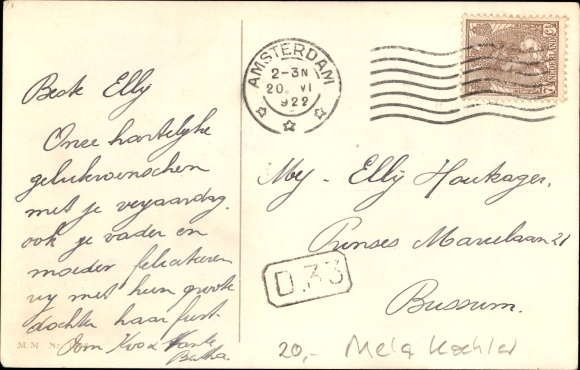 Beste Elly
Onze hartelijke
gelukwenschen
met je verjaardag.
ook je vader en
moeder feliciteren
wij met hun groote
dochter haar feest.
Oom Ko & Tante
Betha.
M.M Nr
AMSTERDAM
2-3N
20 VI
922
NEDERLAND
Mej - Elly Houtzager,
Prinses Marielaan 21
Bussum.
D.33
20,- Mela Koehler